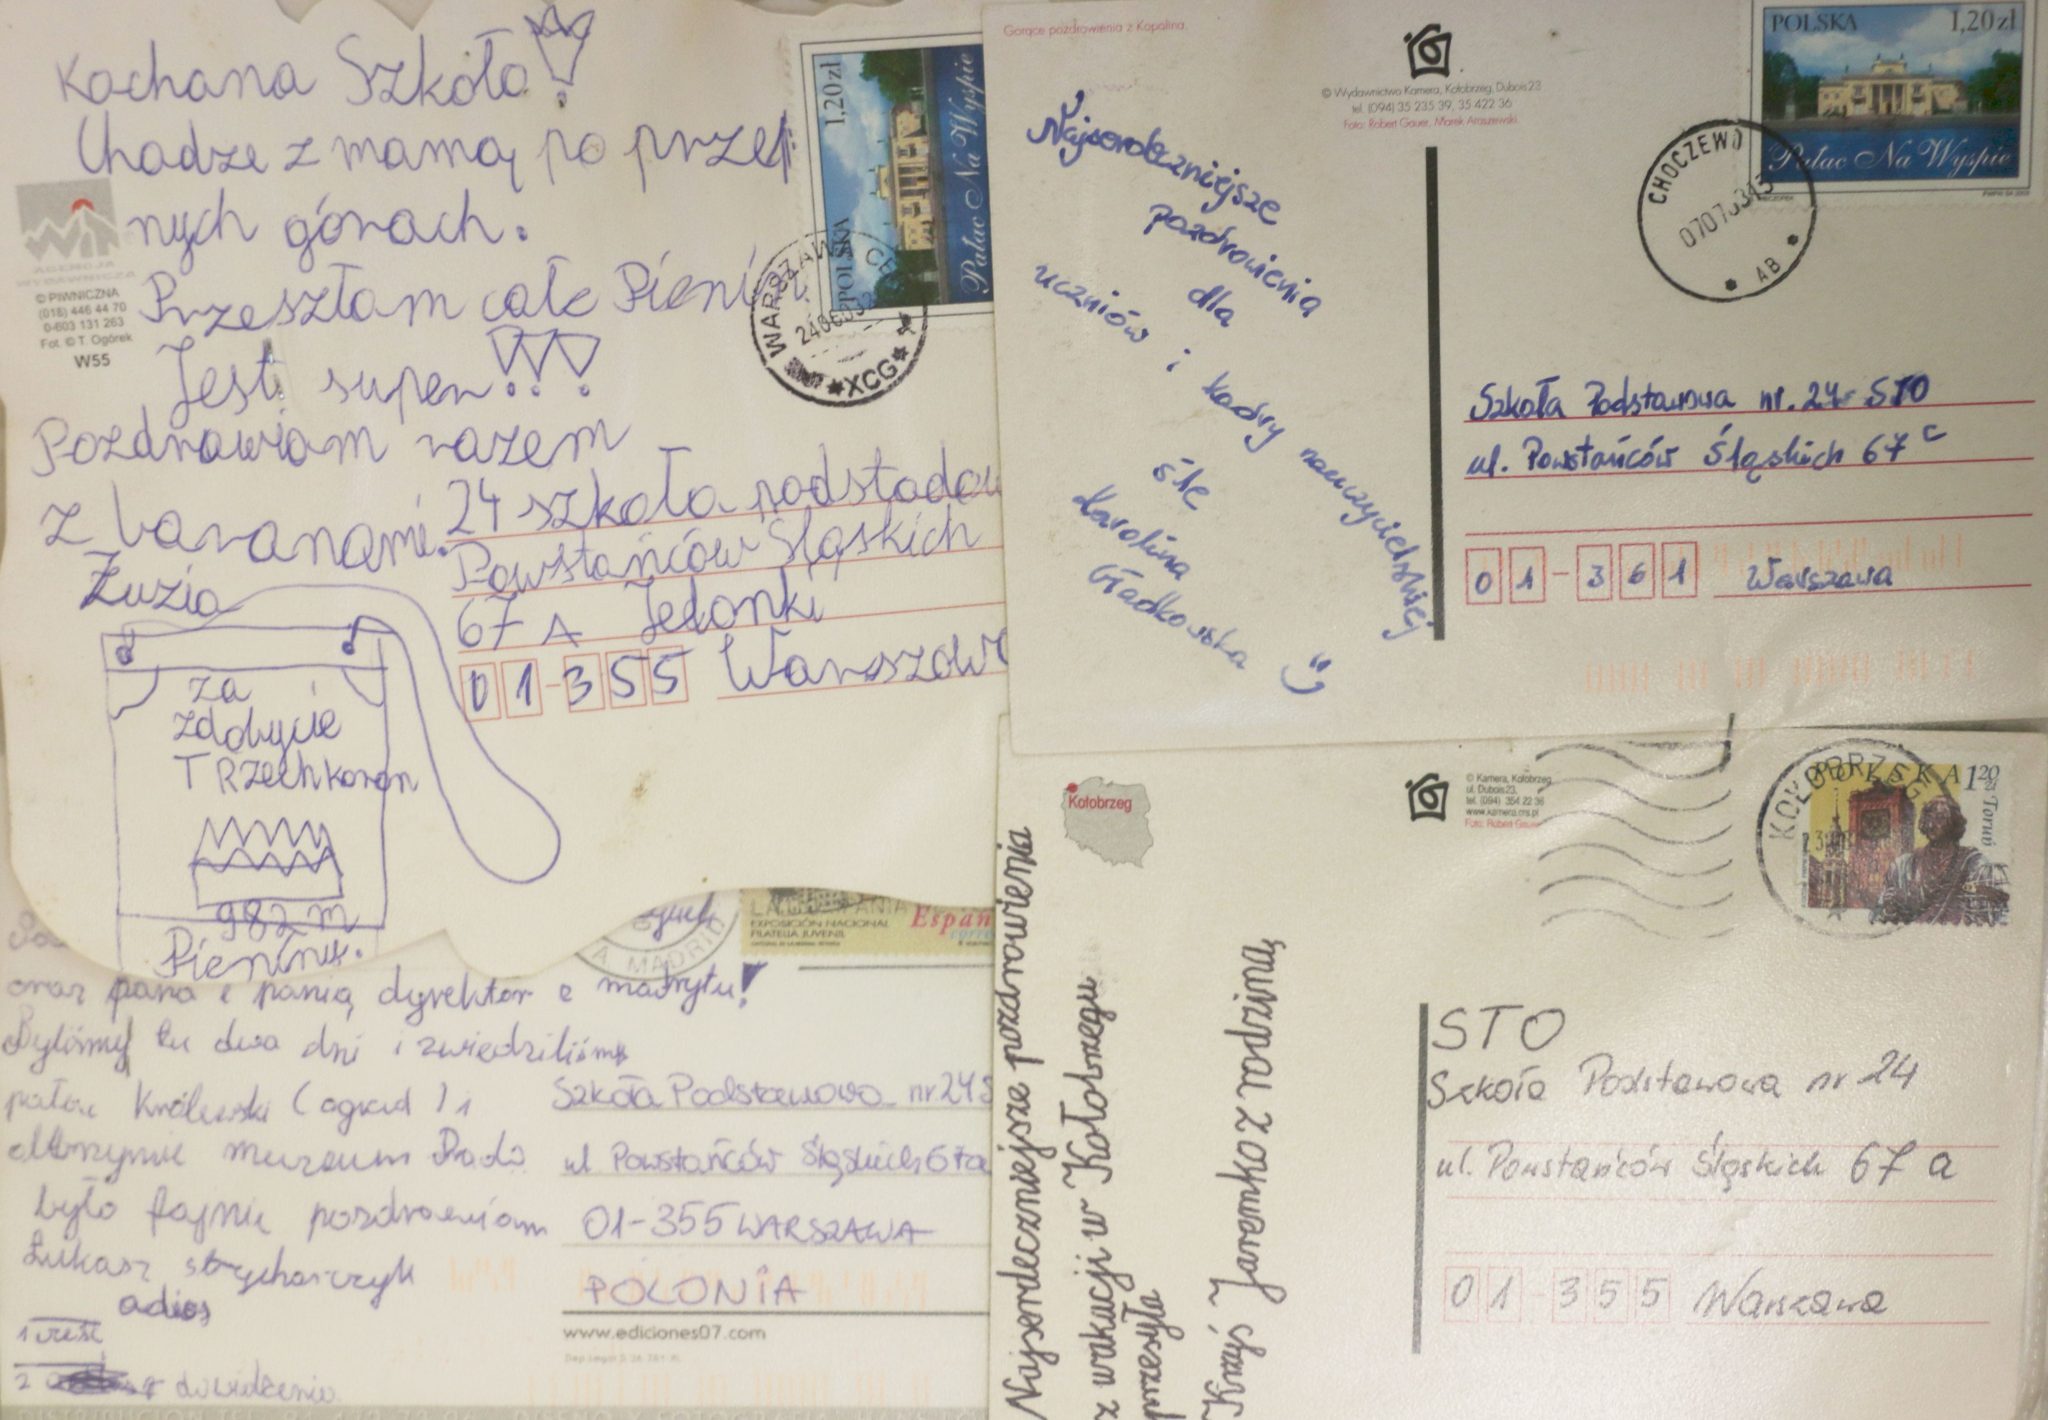 Kochana Szkoło!
Chadze z mamą po przep
nych górach.
Przeszłam całe Pienin
Jest super!!!
Pozdrawiam razem
z baranami.
Zuzia
WiT
AGENCJA
WYDAWNICZA
© PIWNICZNA
(018) 446 44 70
0-603 131 263
Fot. © T. Ogórek
W55
1,20zł
POLSKA
Pałac Na Wyspie
WARSZAWA
XCG
24 szkoła podstadow
Powstańców Śląskich
67 A Jelonki
01-355 Warszawa
za
zdobycie
TRzech koron
982 m
Pieniny.
Gorące pozdrowienia z Kopalina.
© Wydawnictwo Kamera, Kołobrzeg, Dubois 23
tel. (094) 35 235 39, 35 422 36
Foto: Robert Gauer, Marek Araszewski.
POLSKA 1,20zł
Pałac Na Wyspie
CHOCZEWO
AB
Najserdeczniejsze
pozdrowienia
dla
uczniów i kadry nauczycielskiej
śle
Karolina
Gładkowska
Szkoła Podstawowa nr. 24 STO
ul. Powstańców Śląskich 67 c
01-361 Warszawa
EXPOSICIÓN NACIONAL
FILATELIA JUVENIL
Españ
MADRID
oraz pana i panią dyrektor z madrytu!
Byliśmy tu dwa dni i zwiedziliśmy
pałac Królewski (ogrud) i
olbrzymie muzeum Prado.
było fajnie pozdrawiam
Łukasz strycharczyk
adios
1 cześć
2 do widzenia
Szkoła Podstawowa nr 24 S
ul Powstańców Śląskich 67a
01-355 WARSZAWA
POLONIA
www.ediciones07.com
Kołobrzeg
© Kamera, Kołobrzeg
ul. Dubois 23,
tel. (094) 354 22 36
www.kamera.rns.pl
Foto: Robert Gauer
KOŁOBRZEG
POLSKA 1,20 zł
Toruń
Najserdeczniejsze pozdrowienia
z wakacji w Kołobrzegu
przesyła
Krzyś Jaremko z rodziną
STO
Szkoła Podstawowa nr 24
ul. Powstańców Śląskich 67 a
01-355 Warszawa